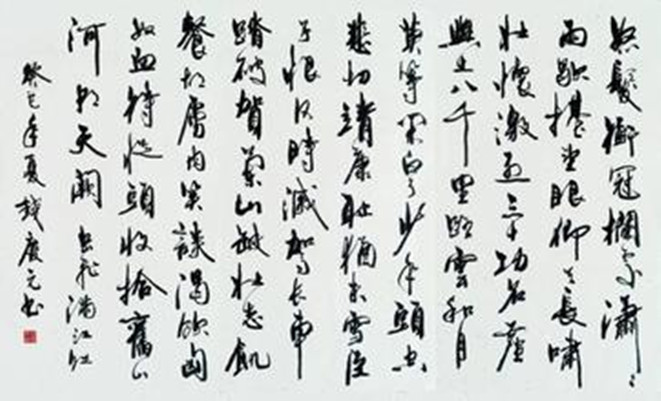 怒髮衝冠欄處瀟瀟
雨歇抬望眼仰天長嘯
壯懷激烈三十功名塵
與土八千里路雲和月
莫等閒白了少年頭空
悲切靖康恥猶未雪臣
子恨何時滅駕長車
踏破賀蘭山缺壯志飢
餐胡虜肉笑談渴飲匈
奴血待從頭收拾舊山
河朝天闕 岳飛滿江紅
癸巳年夏錢元書